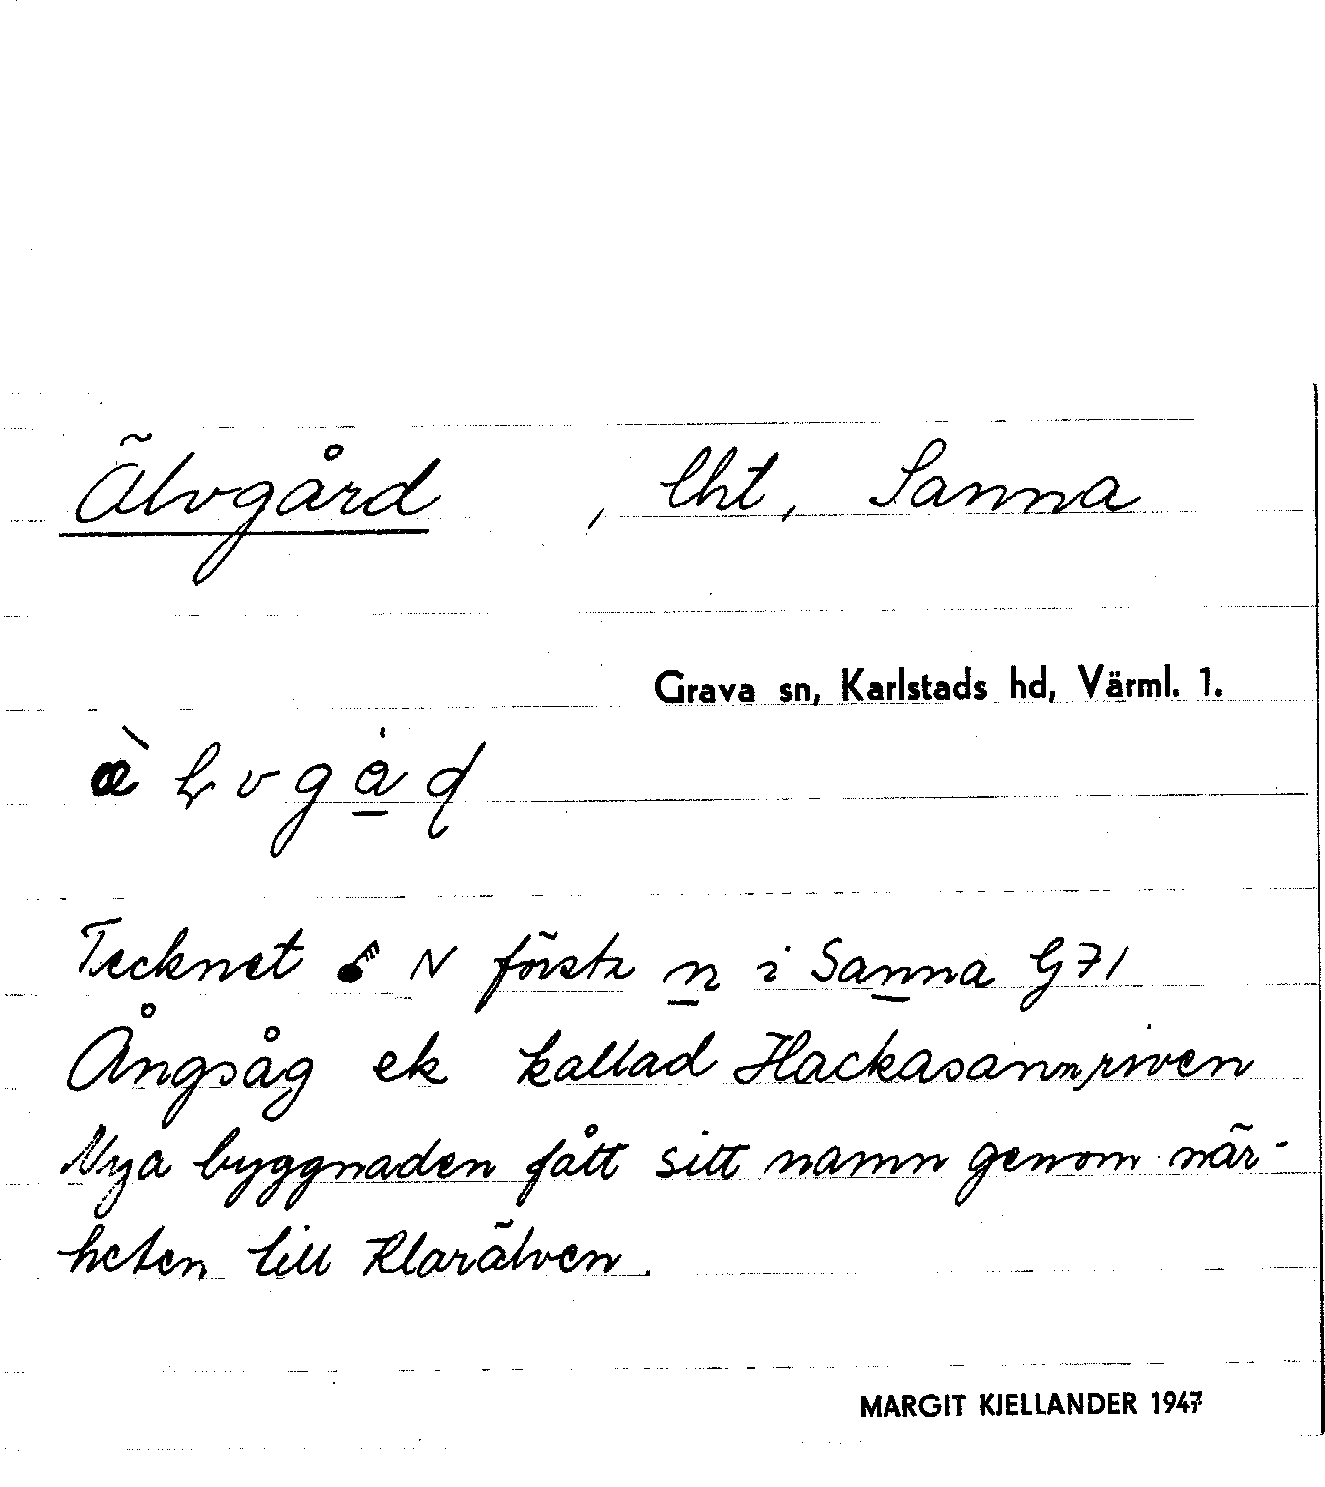 Älvgård , lht, Sanna
Grava sn, Karlstads hd, Värml. 1.
Tecknet N första n i Sanna G71
Ångsåg ek kallad Hackasannriven
Nya byggnaden fått sitt namn genom när-
heten till Klarälven.
MARGIT KJELLANDER 1947